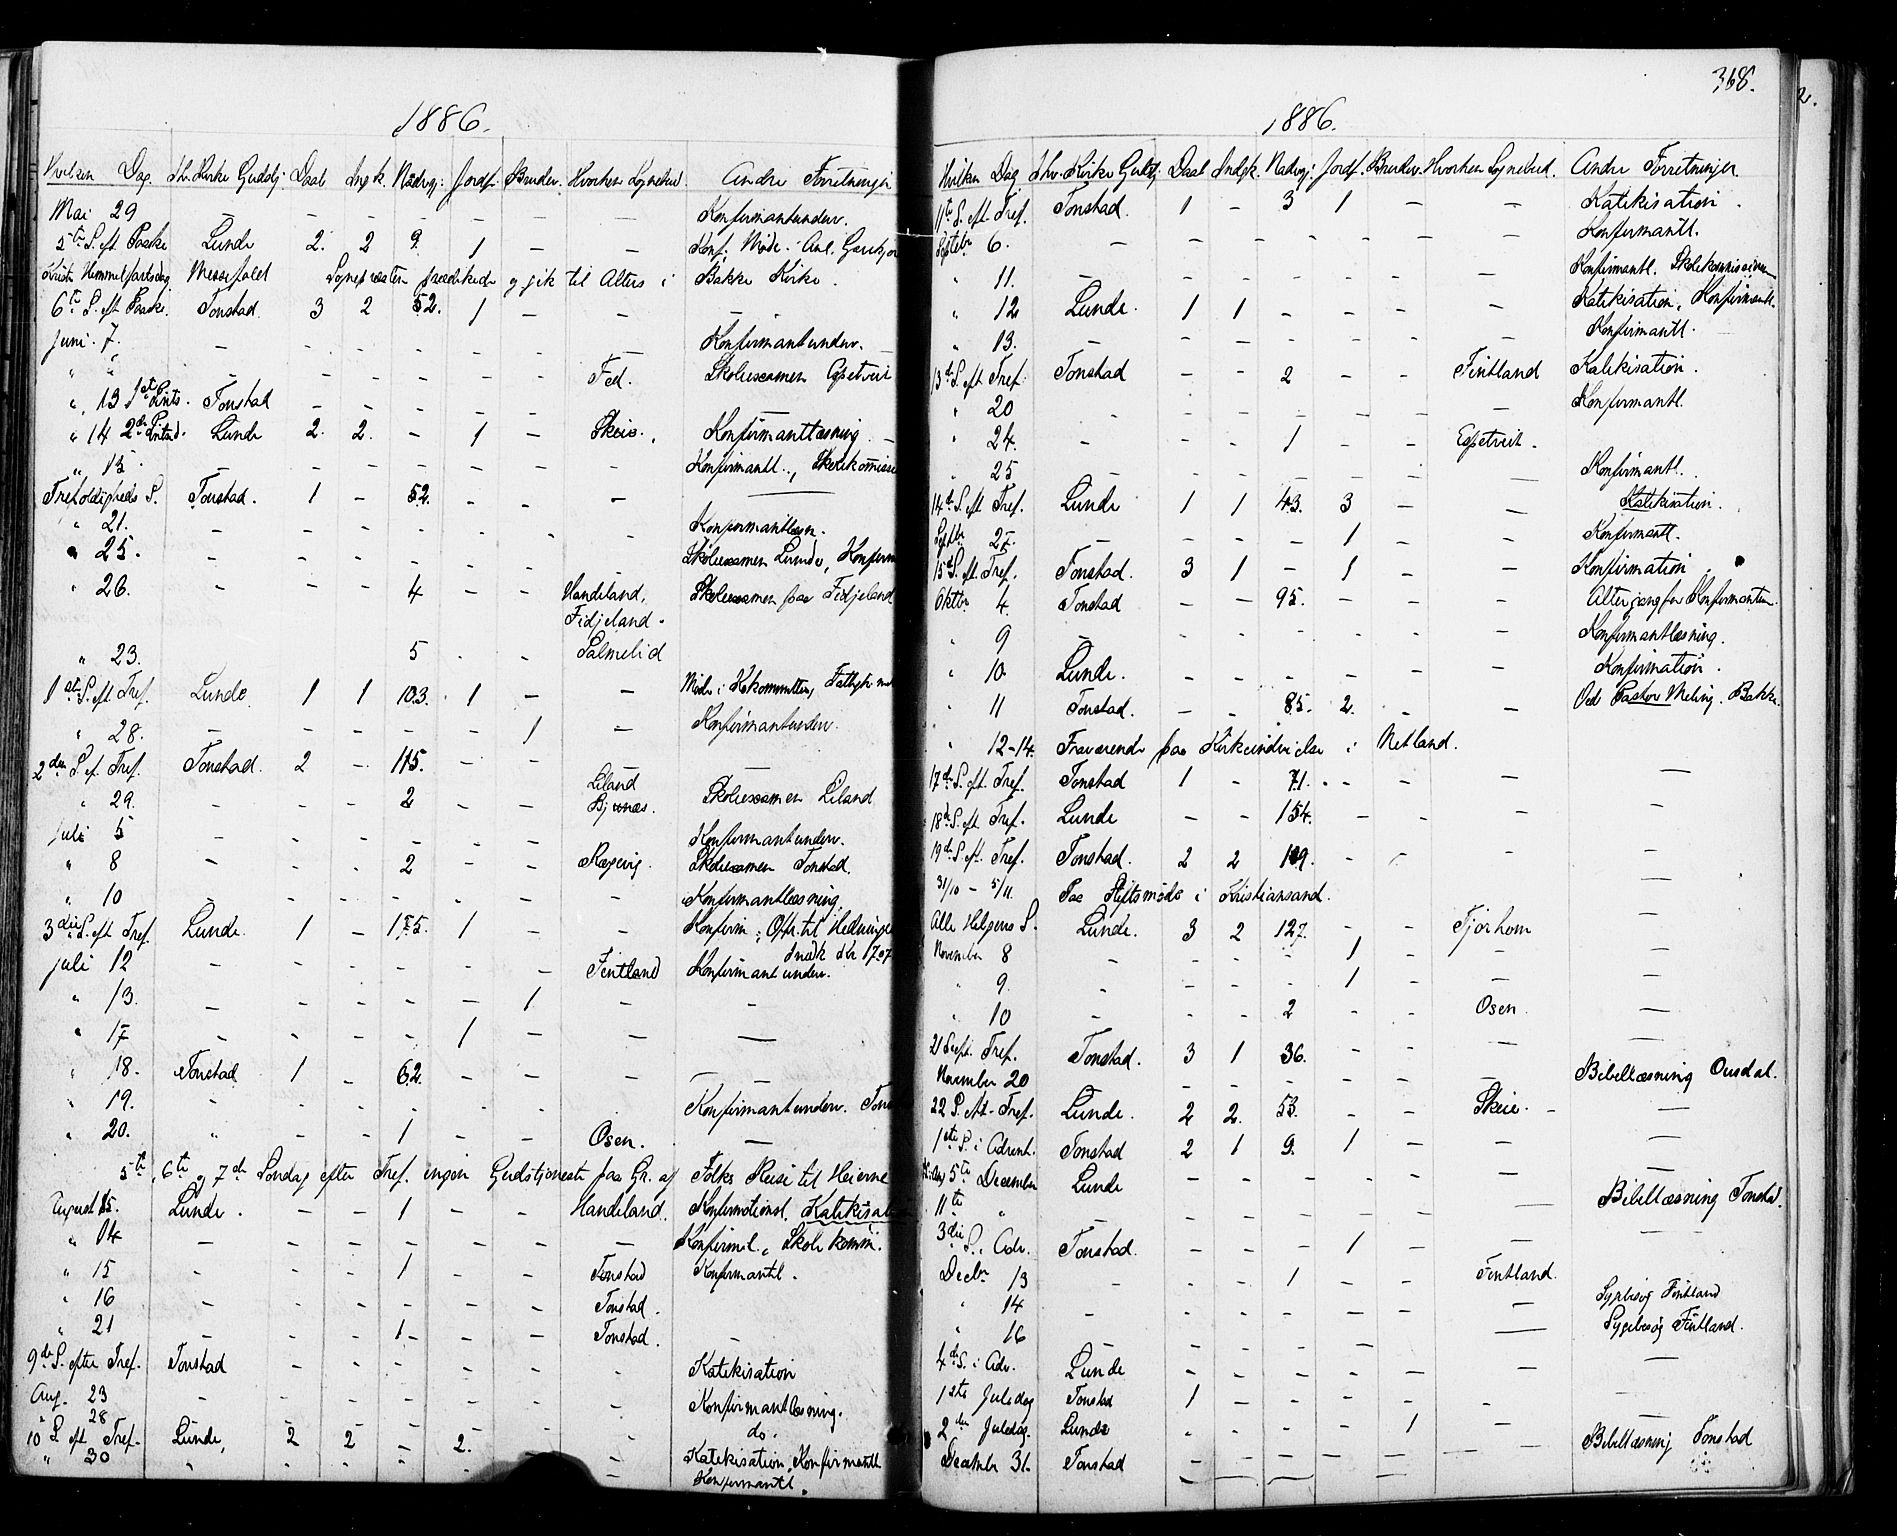 1886.
Hvilken Dag. Hv. Kirke Gudstj. Daab Indgk. Nadvgj. Jordf. Brudev. Hvorhen Sognebud. Andre Forretninger
Mai 29 – – – – – – – Konfirmantunderv.
5te S. eft. Paaske Lunde 2. 2 9. 1 – – Konf.
Kristi Himmelfartsdag. Messefald Sognepræsten prædikede og gik til Alters i Bakke Kirke.
6te S. eft Paaske. Tonstad. 3 2 52. 1 – – –
Juni. 7. – – – – – – – Konfirmantunderv.
" " – – – – – – Fed. Skoleexamen Espetveit
" 13 1ste Pints. Tonstad – – – – – – –
" 14 2den Pintsd. Lunde 2. 2. – 1 – Skeie. Konfirmantlæsning. –
" 15. – – – – – – – Konfirmantl., Skolekommiss
Trefoldigheds S. Tonstad. 1 – 52. – – – –
" 21. – – – – – – – Konfirmantlæsn.
" 25. – – – – – – – Skoleexamen Lunde, Konfirm
" 26. – – – 4 – – Handeland, Skoleexamen paa Fidjeland
Fidjeland.
" 23. 5 - - Salmelid
1ste S. eft Tref. Lunde 1 1 103. 1 – –
" 28. – – – – – 1 – Konfirmantunderv.
2den S. ef. Tref. Tonstad. 2 – 115. – – Liland –
" 29. – – – 2 – – Bjunæs. Skoleexamen Liland
Juli 5 – – – – – – – Konfirmantunderv.
" 8 – – – 2 – – Skoleexamen Tonstad.
" 10 – – – – – – – Konfirmantlæsning.
3die S. eft Tref. Lunde. 1 – 175. 1 – – Konfirm.; Ofr. til Hedninge
Juli 12 – – – – – – Fintland Konfirmantunderv.
" 13. – – – – – 1 – –
" 17 – – – – 1 – – –
" 18. Tonstad 1 – 62. – – – –
" 19. – – – – – – – Konfirmantunderv. Tons
" 20. " – – 1 – – Osen. –
5te, 6te og 7de Søndag efter Tref. ingen Gudstjeneste paa Gr. af Folks Reise til Heierne
August 15. Lunde. – – 1 – – Handeland. Katekisat
" 14 – – – – – – – Konfirml. Skolekomm.
" 15 – – – 1 – – Tonstad Konfirmantl.
" 16 – – – – – – Tonstad.
" 21 – – – 1 – – – Tonstad. –
9de S. efter Tref. Tonstad – – – – – – Katekisation
Aug. 23 – – – – – – – Konfirmantlæsning.
" 28 do.
10 S. eft Tref. Lunde, 2 2 – 2. – – Katekisation, Konfirmantl
" 30 – – – – – – Konfirmantl.
368.
1886.
Hvilken Dag Hv. Kirke Gudstj. Daab Indgk. Nadvgj. Jordf. Brudev. Hvorhen Sognebud. Andre Forretninger
11te S. eft Tref. Tonstad. 1 – 3 1 – – Katekisation.
Septebr 6. – – – – – – – Konfirmantl.
" 11. – – – – – – – Konfirmantl. Skolekommissionen
" 12 Lunde. 1 1 – – – – Katekisation, Konfirmantl.
" 13. – – – – – – – Konfirmantl.
13de S. eft Tref. Tonstad – – 2 – – Fintland Katekisation.
" 20 – – – – – – – Konfirmantl.
" 24. – – – 1 – – Espetveit.
" 25 – – – – – – – Konfirmantl.
14de S. eft Tref. Lunde 1 1 43. 3 – – Katekisation.
Septbr 27. – – – – 1 – – Konfirmantl.
15de S. eft. Tref. Tonstad. 3 1 – 1 – – Konfirmation.
Oktbr 4. Tonstad – – 95. – – – Altergang for Konfirmanterne.
" 9 – – – – – – – Konfirmantlæsning.
" 10. Lunde. – – – – – – Konfirmation.
" 11 Tonstad. – – 85. 2. – – Ved Pastor Meling. Bakke.
" 12–14. Fraværende paa Kirkeindvielse i Netland.
17de S. eft. Tref. Tonstad 1 – 71. – – – –
18de S. eft Tref. Lunde – – 154. – – – –
19de S. eft. Tref. Tonstad. 2 2 119. – – – –
31/10 – 5/11 Paa Stiftsmøde i Kristiansand. –
Alle Helgens S. Lunde. 3 2 127. – – Fjørhom –
November 8 – – – – 1 – – –
" 9. – – – – 1 – – –
" 10 – – – 2 – – Osen. –
21 S. eft. Tref. Tonstad. 3 1 36. – – – –
November 20 – – – – – – – Bibellæsning Ousdal.
22 S. eft. Tref. Lunde. 2 2. 53. – – Skeie. –
1ste S. i Advent. Tonstad 2 1 9. 1 – – –
5te December Lunde – – – – – – –
11te " – – – – – – – Bibellæsning Tonstad.
3die S. i Adv. Tonstad. – – – 1 – – –
Decbr 13 – – – 1 – – Fintland.
" 14 – – – – – – – Sygebesøg Fintland
" 16 – – – – – – – Sygebesøg Fintland.
4de S. i Adv. Lunde – – – – – – –
1ste Juledag Tonstad 1 – – – – – –
2den Juledag. Lunde – – – – 1 – –
December 31. Tonstad – – – – – – Bibellæsning Tonstad
2.